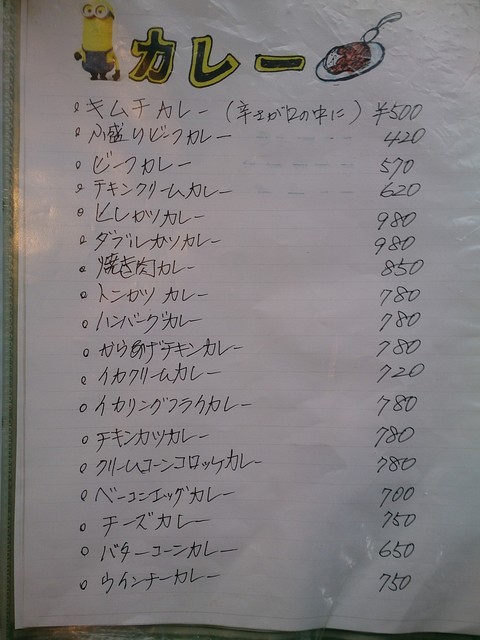 カレー
キムチカレー (辛さが口の中に) ¥500
小盛りビーフカレー 420
ビーフカレー 570
チキンクリームカレー 620
ヒレカツカレー 980
ダブルカツカレー 980
焼き肉カレー 850
トンカツ カレー 780
ハンバーグカレー 780
からあげチキンカレー 780
イカクリームカレー 720
イカリングフライカレー 780
チキンカツカレー 780
クリームコーンコロッケカレー 780
ベーコンエッグカレー 700
チーズカレー 750
バターコーンカレー 650
ウインナーカレー 750